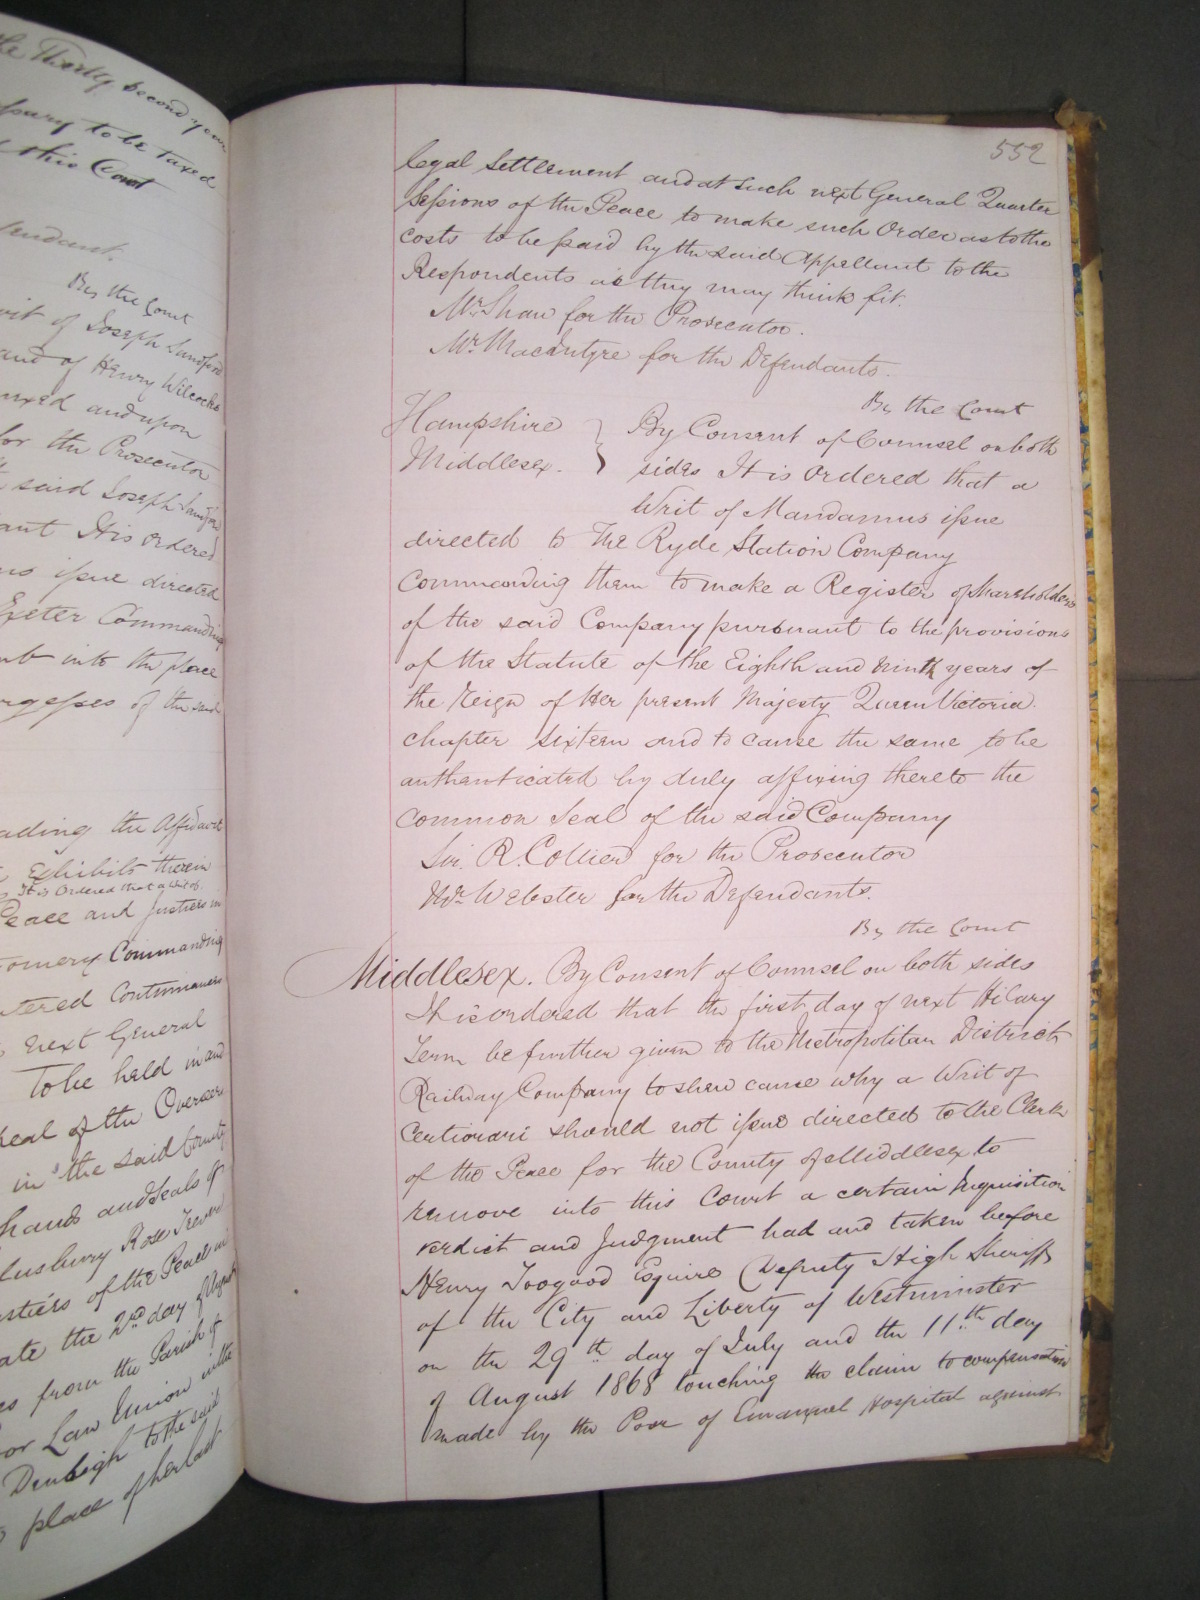 le Thirty second year
pany to be taxed
this Court
fendant.
By the Court
vit of Joseph Landford
and of Henry Wilcocks
nxed and upon
for the Prosecutor
said Joseph
ant It is Ordered
issue directed
Exeter Commanding
into the place
rgesses of the said
ading the Affidavit
Exhibits therein
It is Ordered that a Writ of
Peace and Justices in
Commanding
tered Continuances
next General
To be held in and
eal of the Overseers
in the said County
hands and Seals of
Rose Trevor
ustices of the Peace in
ate the 2nd day of August
es from the Parish of
or Law Union in the
Denbigh to the said
place of her last
552
legal Settlement and at such next General Quarter
Sessions of the Peace to make such Order as to the
costs to be paid by the said Appellant to the
Respondents as they may think fit.
Mr. Shaw for the Prosecutor.
Mr. MacIntyre for the Defendants.
By the Court
Hampshire } By Consent of Counsel on both
Middlesex. sides It is ordered that a
Writ of Mandamus issue
directed to The Ryde Station Company
Commanding them to make a Register of Shareholders
of the said Company pursuant to the provisions
of the Statute of the Eighth and Ninth years of
the Reign of Her present Majesty Queen Victoria.
chapter Sixteen and to cause the same to be
authenticated by duly affixing thereto the
common Seal of the said Company
Sir. R. Collier for the Prosecutor
Mr. Webster for the Defendants.
By the Court
Middlesex. By Consent of Counsel on both sides
It is ordered that the first day of next Hilary
Term be further given to the Metropolitan District
Railway Company to shew cause why a Writ of
Certiorari should not issue directed to the Clerk
of the Peace for the County of Middlesex to
remove into this Court a certain Inquisition
verdict and Judgment had and taken before
Henry Toogood Esquire Deputy High Sheriff
of the City and Liberty of Westminster
on the 29th day of July and the 11th day
of August 1868 touching the claim to compensation
made by the Poor of Emanuel Hospital against